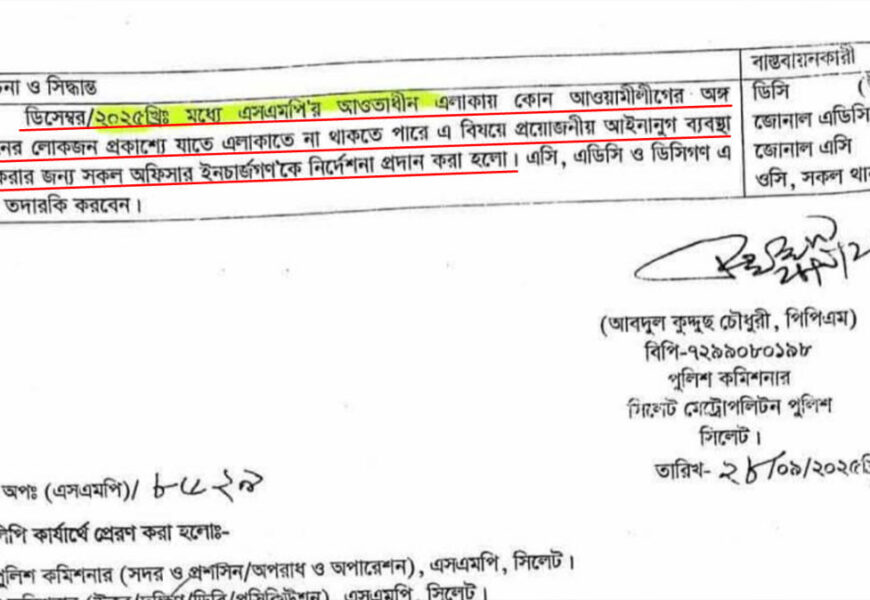 বাস্তবায়নকারী
না ও সিদ্ধান্ত
ডিসেম্বর/২০২৫খ্রিঃ মধ্যে এসএমপি'র আওতাধীন এলাকায় কোন আওয়ামীলীগের অঙ্গ
নের লোকজন প্রকাশ্যে যাতে এলাকাতে না থাকতে পারে এ বিষয়ে প্রয়োজনীয় আইনানুগ ব্যবস্থা
করার জন্য সকল অফিসার ইনচার্জগণ'কে নির্দেশনা প্রদান করা হলো। এসি, এডিসি ও ডিসিগণ এ
তদারকি করবেন।
ডিসি (
জোনাল এডিসি
জোনাল এসি
ওসি, সকল থা
(আবদুল কুদ্দুছ চৌধুরী, পিপিএম)
বিপি-৭২৯৯০৮০১৯৮
পুলিশ কমিশনার
সিলেট মেট্রোপলিটন পুলিশ
সিলেট।
তারিখ- ২৮/০৯/২০২৫খ্রি
অপঃ (এসএমপি)/
লিপি কার্যার্থে প্রেরণ করা হলোঃ-
পুলিশ কমিশনার (সদর ও প্রশাসন/অপরাধ ও অপারেশন), এসএমপি, সিলেট।
এসএমপি, সিলেট।